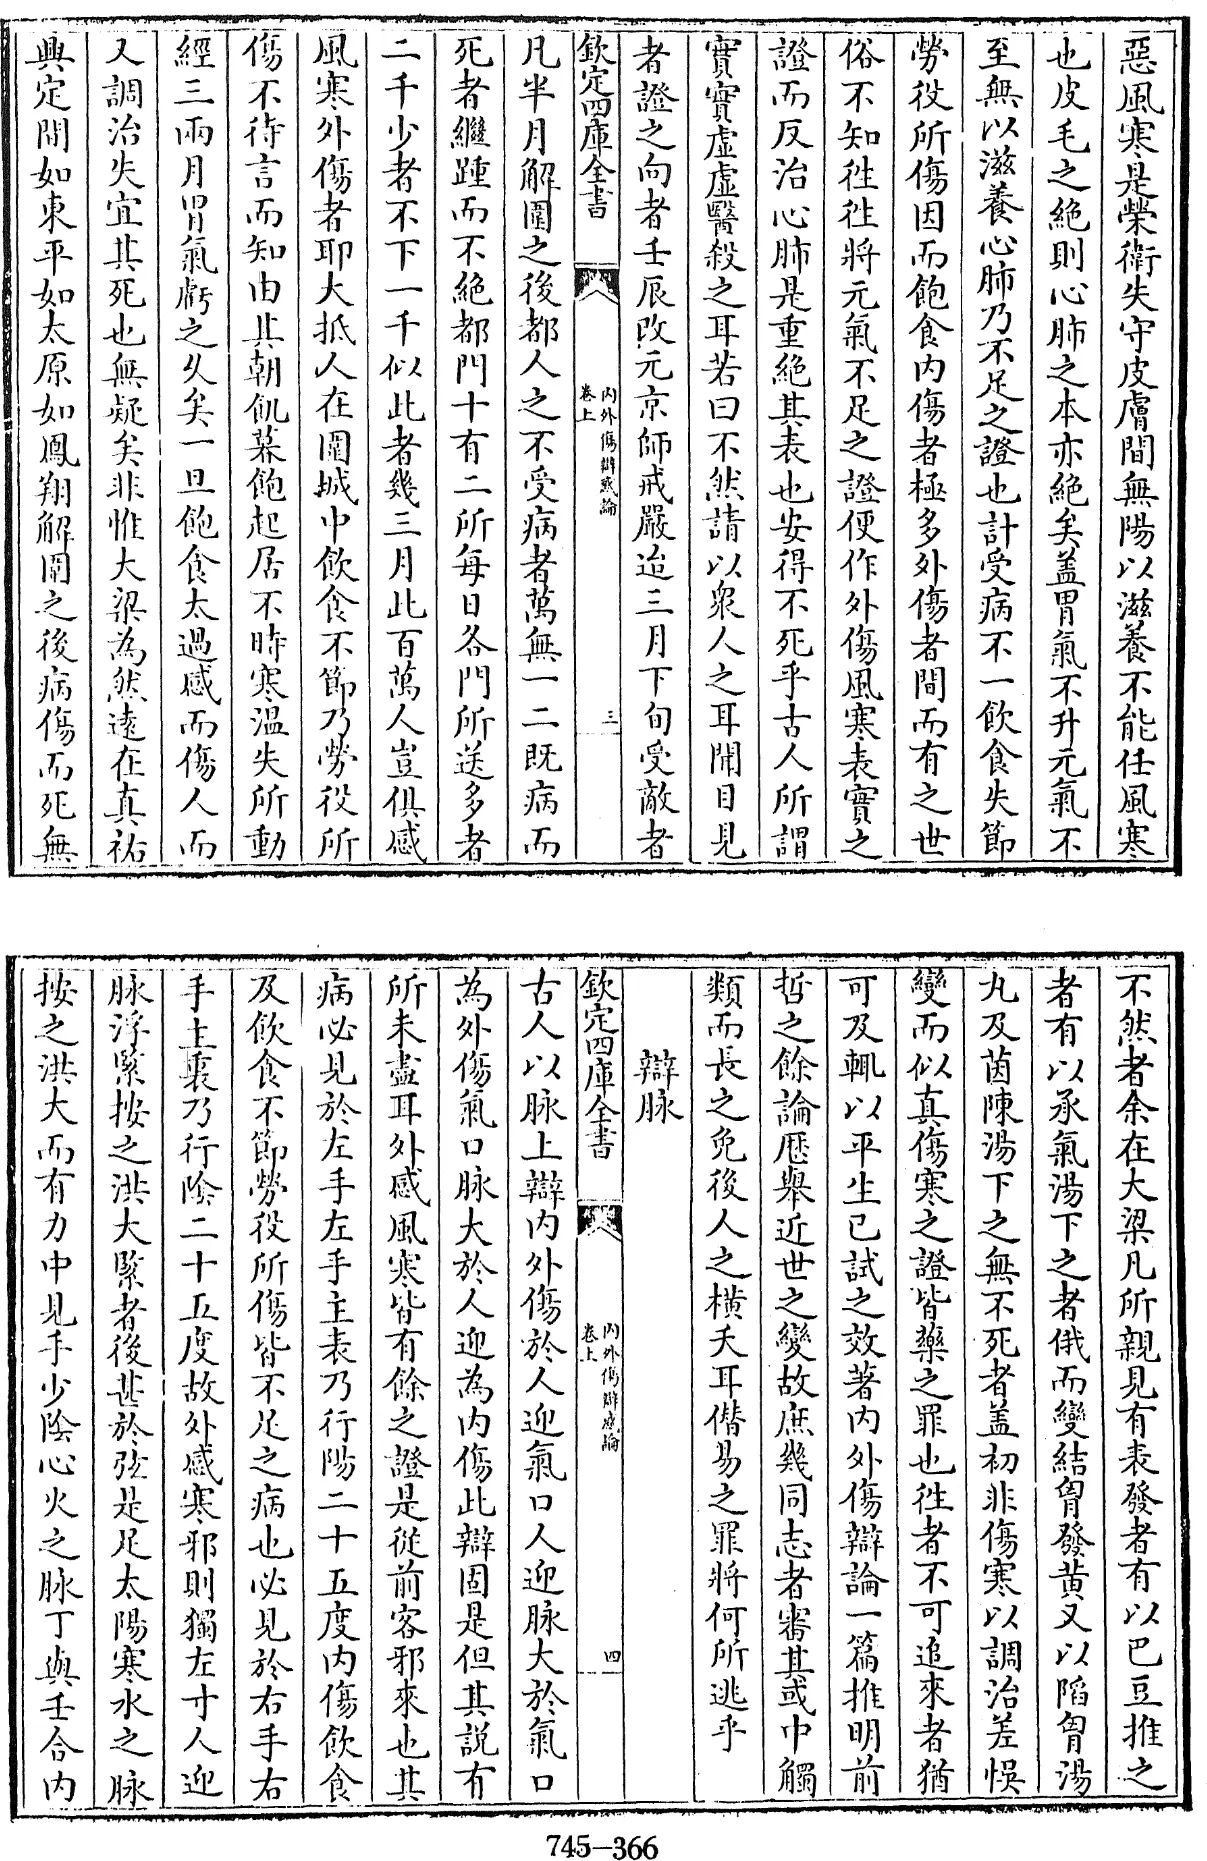 惡風寒是榮衛失守皮膚間無陽以滋養不能任風寒
也皮毛之絶則心肺之本亦絶矣盖胃氣不升元氣不
至無以滋養心肺乃不足之證也計受病不一飲食失節
勞役所傷因而飽食内傷者極多外傷者間而有之世
俗不知徃徃將元氣不足之證便作外傷風寒表實之
證而反治心肺是重絶其表也安得不死乎古人所謂
實實虛虛醫殺之耳若曰不然請以衆人之耳聞目見
者證之向者壬辰改元京師戒嚴迨三月下旬受敵者
欽定四庫全書
内外傷辯惑論
卷上
三
凡半月解圍之後都人之不受病者萬無一二既病而
死者繼踵而不絶都門十有二所每日各門所送多者
二千少者不下一千似此者幾三月此百萬人豈俱感
風寒外傷者耶大抵人在圍城中飲食不節乃勞役所
傷不待言而知由其朝飢暮飽起居不時寒温失所動
經三兩月胃氣虧之久矣一旦飽食太過感而傷人而
又調治失宜其死也無疑矣非惟大梁為然逺在真祐
興定間如東平如太原如鳳翔解圍之後病傷而死無
不然者余在大梁凡所親見有表發者有以巴豆推之
者有以承氣湯下之者俄而變結胷發黄又以陷胷湯
丸及茵陳湯下之無不死者盖初非傷寒以調治差悞
變而似真傷寒之證皆藥之罪也徃者不可追來者猶
可及輒以平生已試之效著内外傷辯論一篇推明前
哲之餘論歴舉近世之變故庶幾同志者審其或中觸
類而長之免後人之橫夭耳僭易之罪將何所逃乎
辯脉
欽定四庫全書
内外傷辯惑論
卷上
四
古人以脉上辯内外傷於人迎氣口人迎脉大於氣口
為外傷氣口脉大於人迎為内傷此辯固是但其説有
所未盡耳外感風寒皆有餘之證是從前客邪來也其
病必見於左手左手主表乃行陽二十五度内傷飲食
及飲食不節勞役所傷皆不足之病也必見於右手右
手主裏乃行隂二十五度故外感寒邪則獨左寸人迎
脉浮緊按之洪大緊者後甚於弦是足太陽寒水之脉
按之洪大而有力中見手少隂心火之脉丁與壬合内
745-366